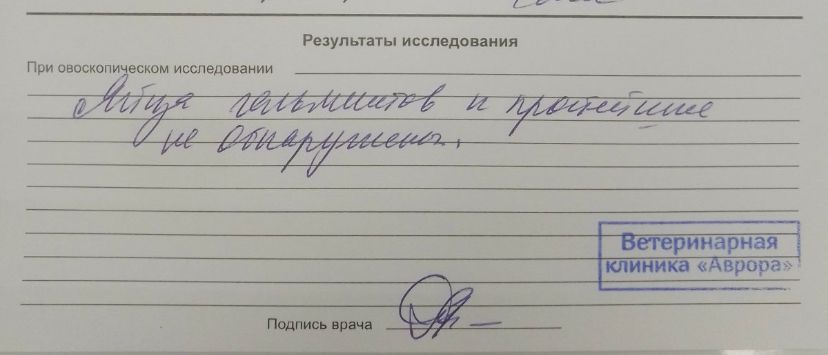 Результаты исследования
При овоскопическом исследовании
Яйца гельминтов и простейшие
не обнаружены.
Ветеринарная
клиника «Аврора»
Подпись врача